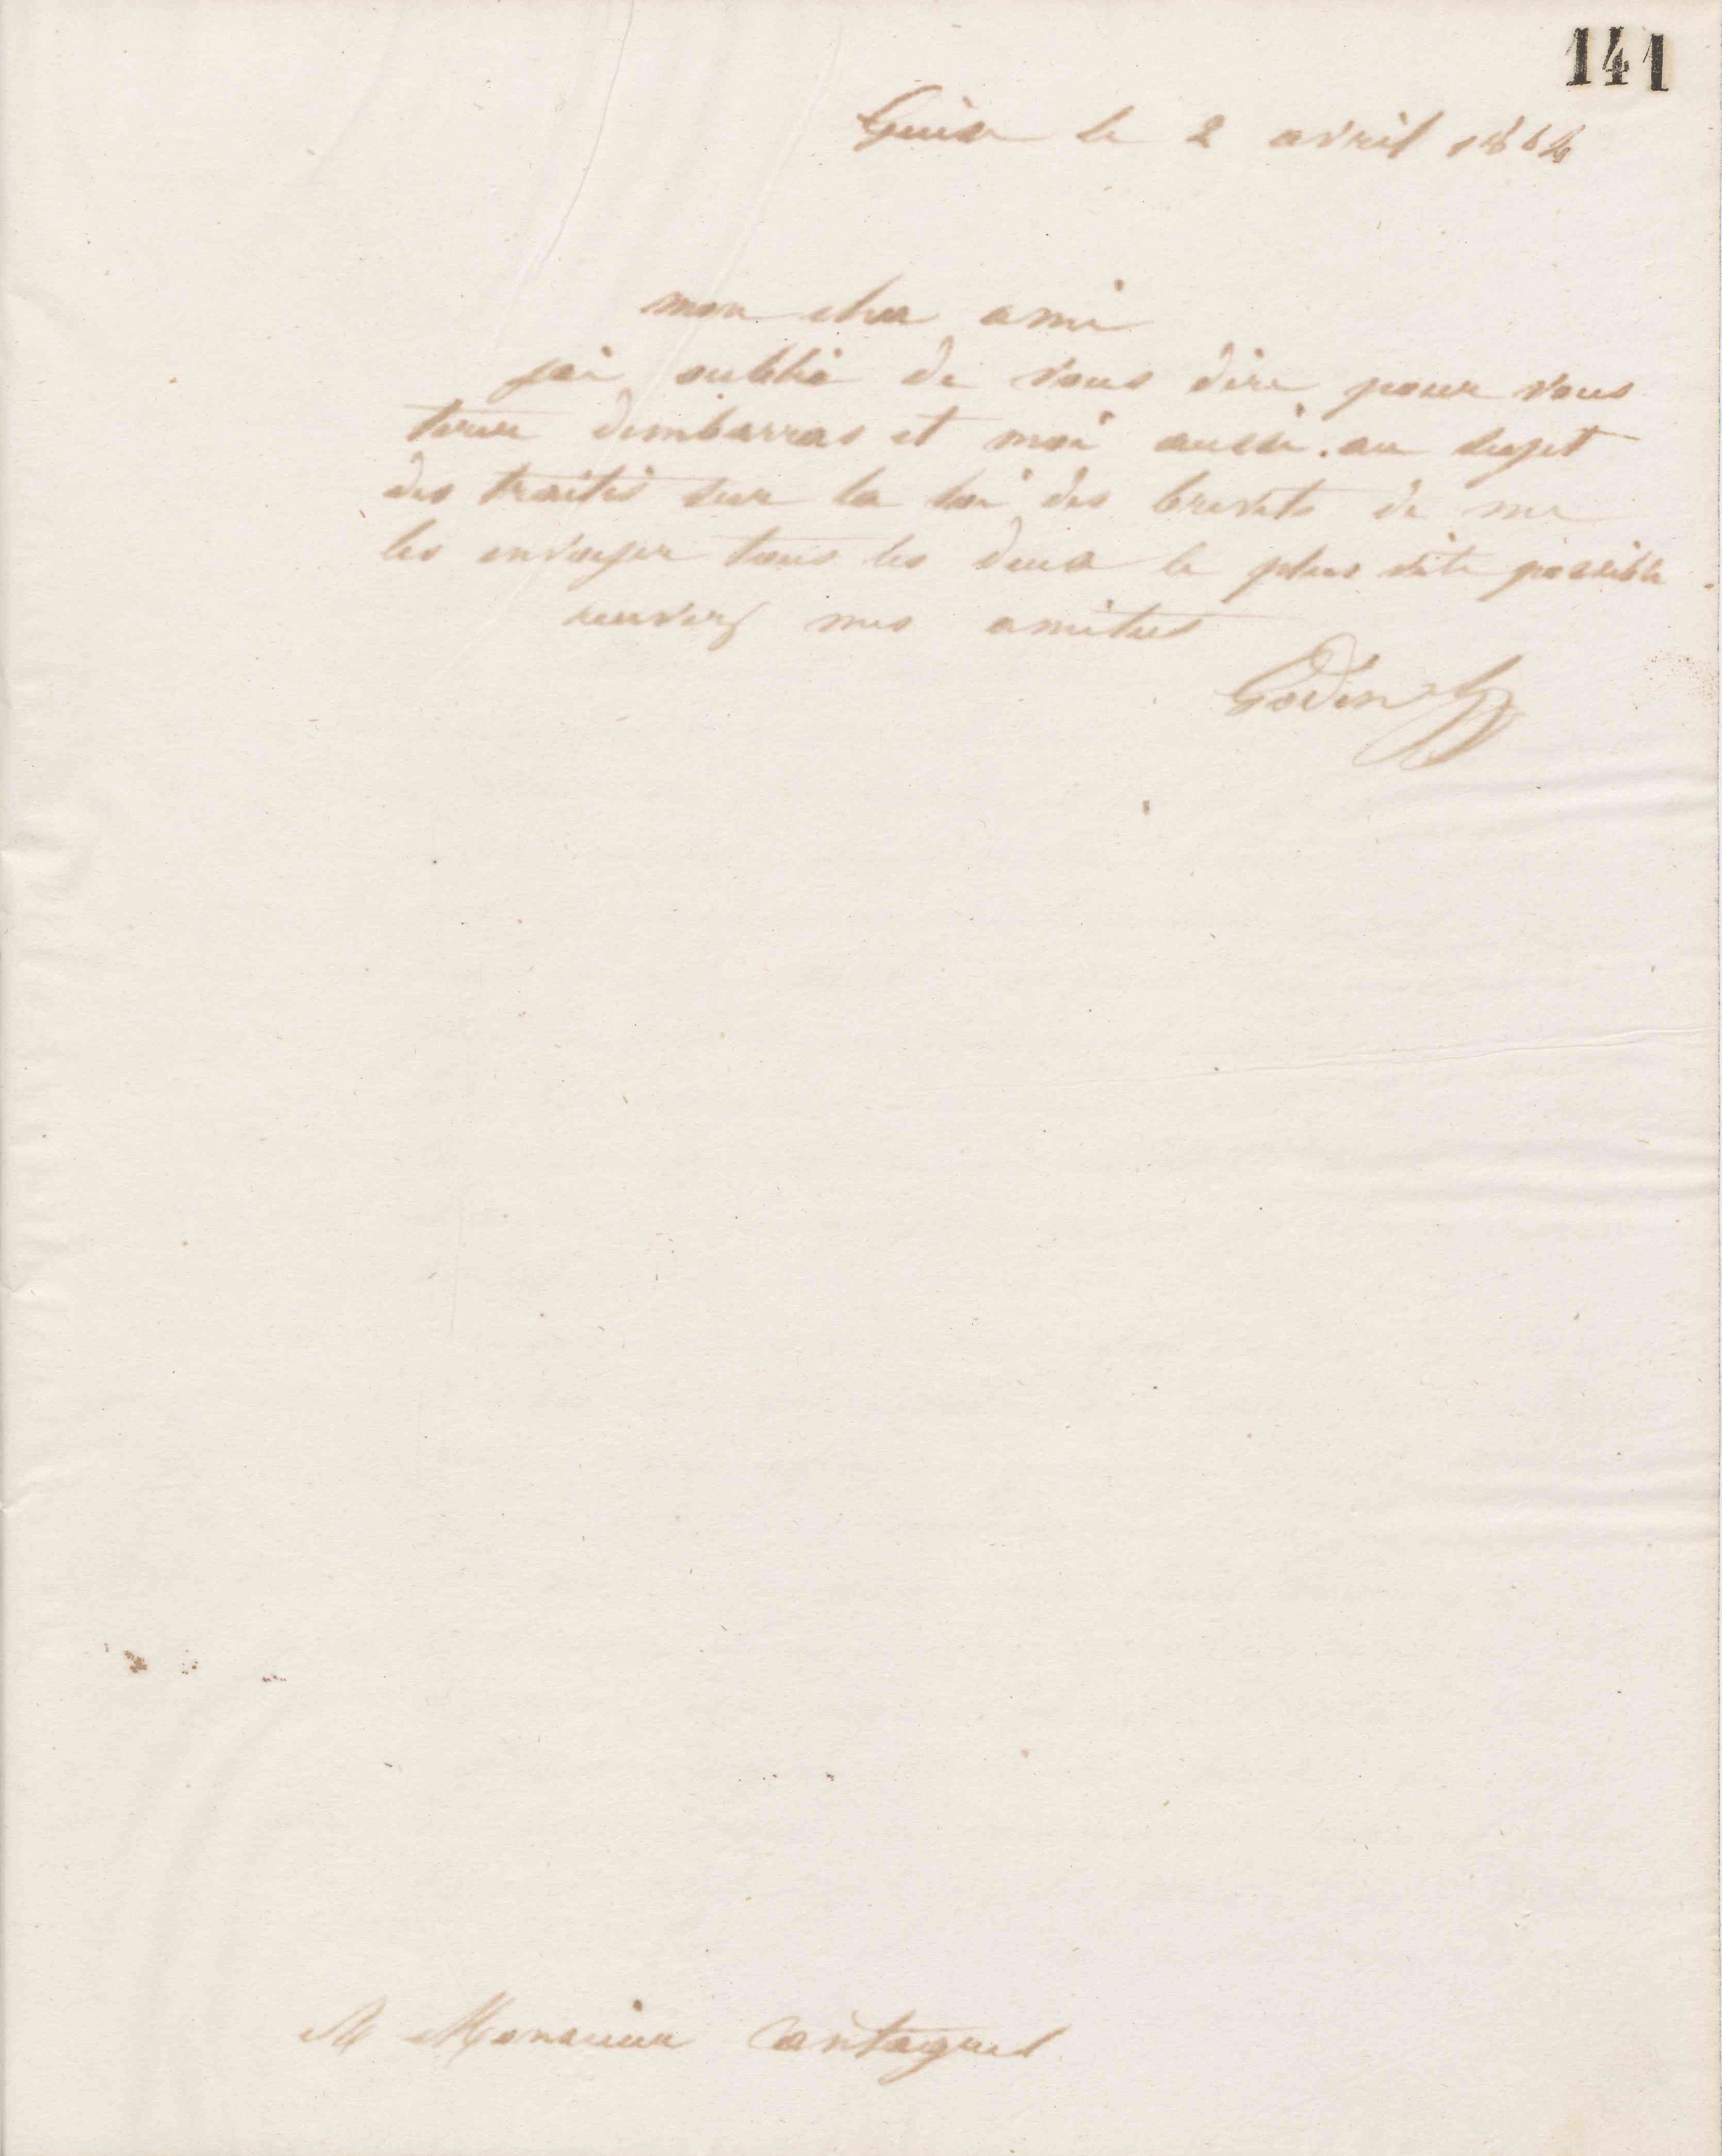 141
Guise le 2 avril 1864
mon cher ami
jai oublié de vous dire pour vous
tirer dembarras et moi aussi. au sujet
des traités sur la loi des brevets de me
les envoyer tous les deux le plus vite possible
recevez mes amitiés
Godin
A Monsieur Cantagrel